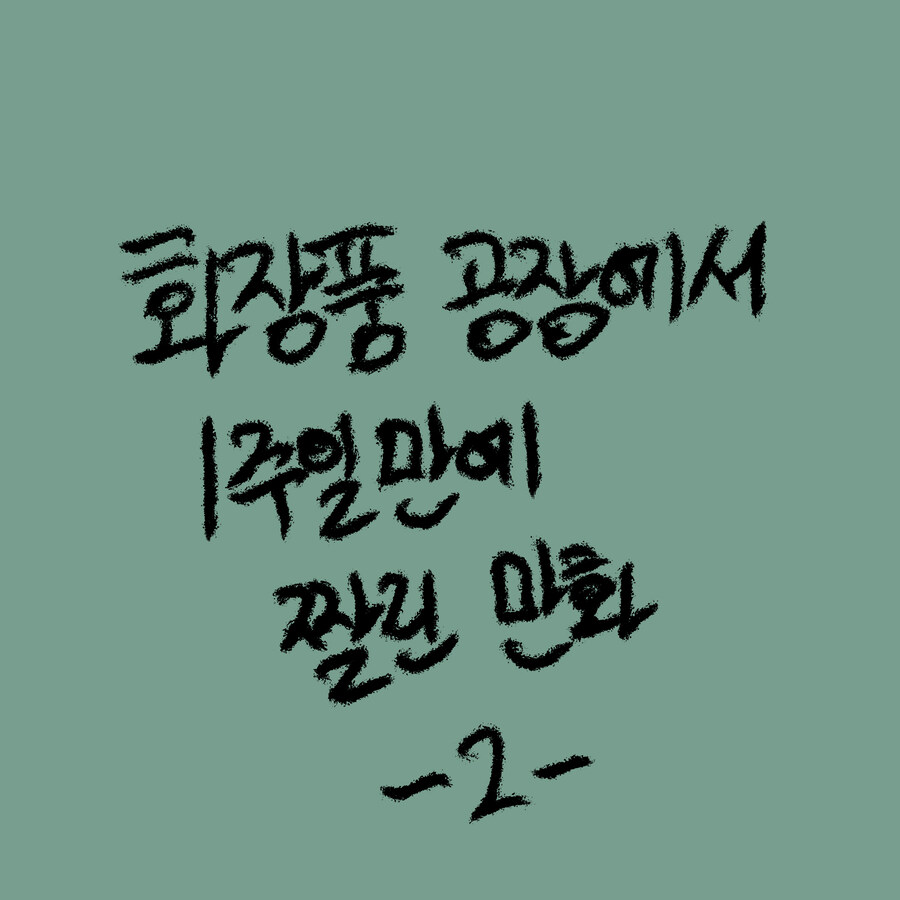 화장품 공장에서
1주일만에
짤린 만화
-2-